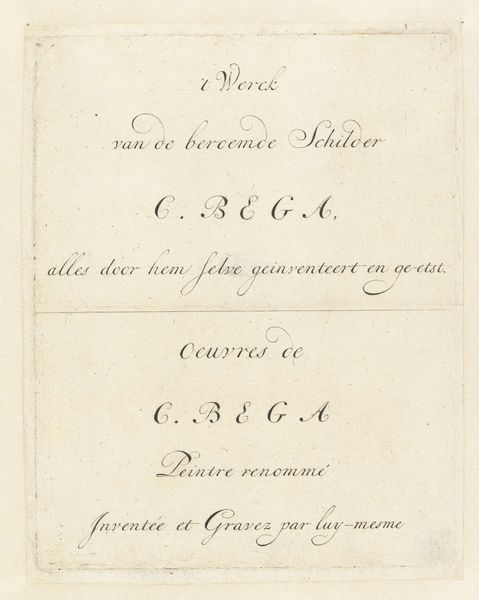 't Werck
van de beroemde Schilder
C. BEGA,
alles door hem selve geinventeert en ge-etst.
Oeuvres de
C. BEGA
Peintre renommé
Inventée et Gravez par luy-mesme